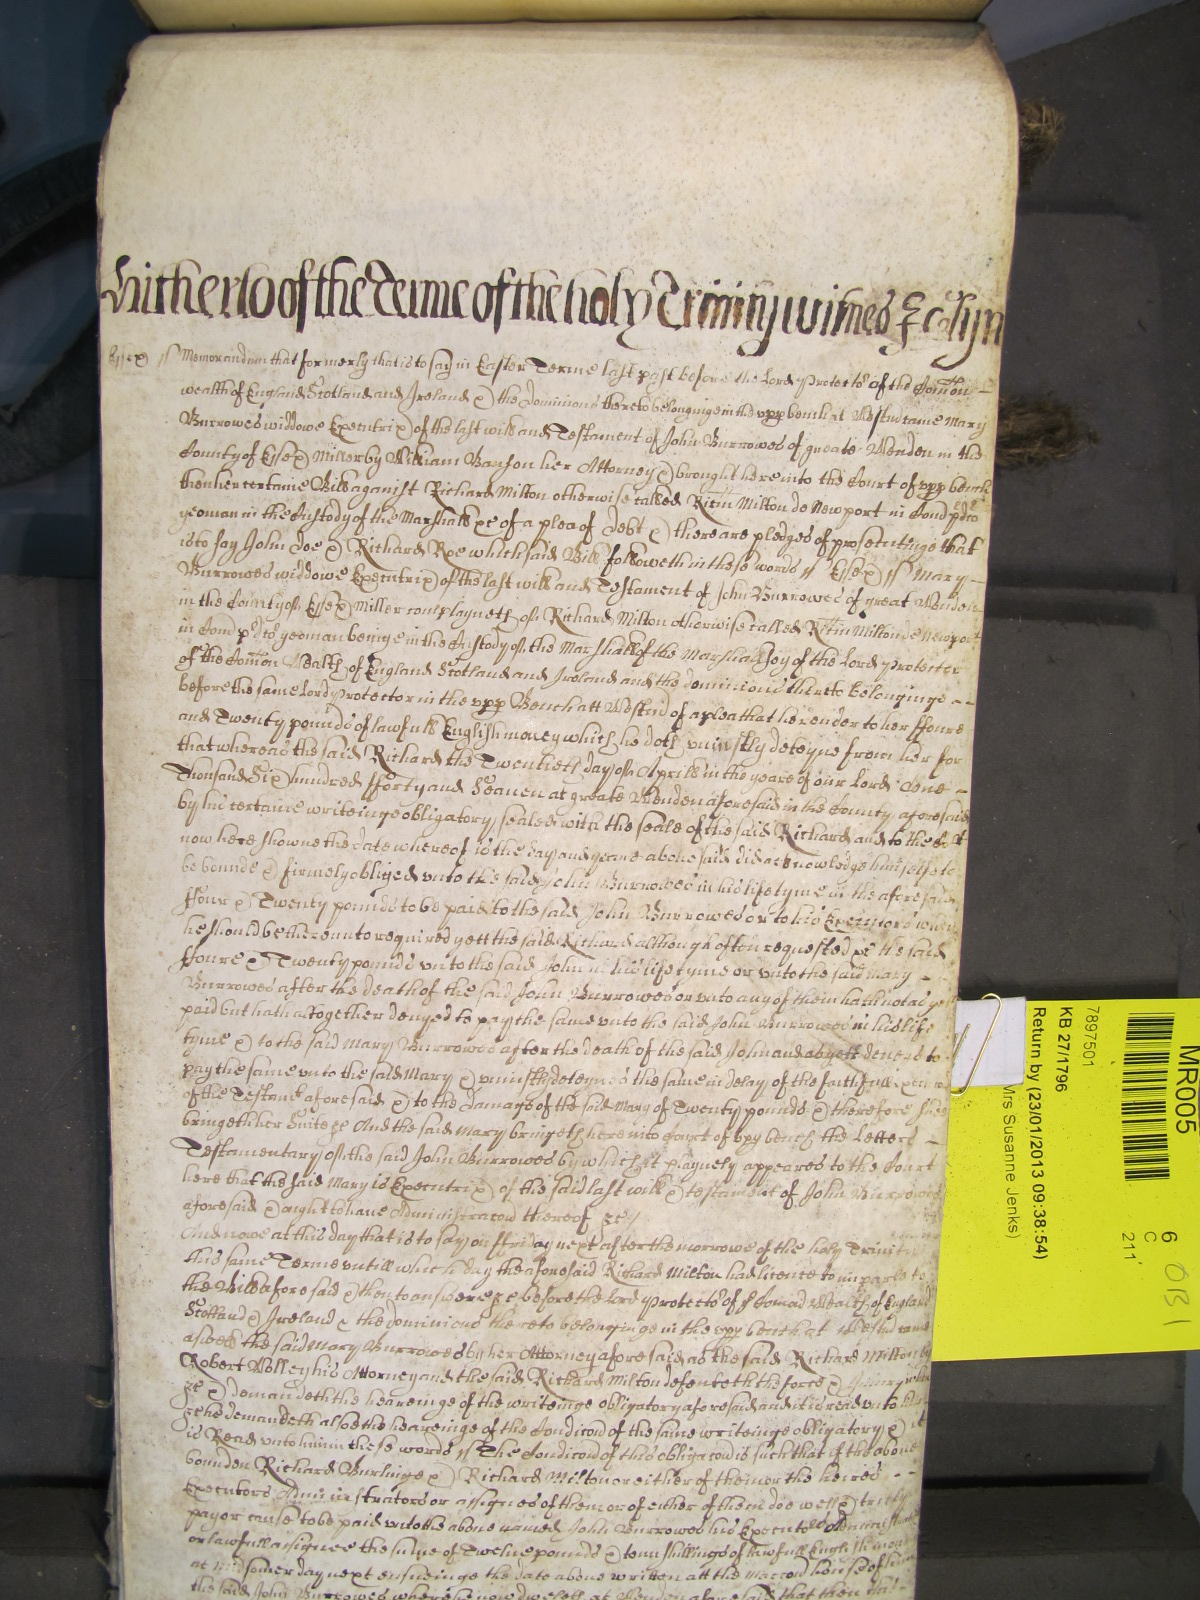 Hitherto of the Terme of the holy Trinity witnes &c Glyn
Essex ss Memorandum that formerly that is to say in Easter Terme last past before the Lord Protector of the Comon
wealth of England Scotland and Ireland & the dominions thereto belonginge in the upp bench at Westm came Mary
Burrowes widdowe Executrix of the last will and Testament of John Burrowes of greate Wenden in the
County of Essex Miller by William Banson her Attorney & brought here into the Court of upp bench
then her certaine Bill against Richard Milton otherwise called Ricum Milton de Newport in Cond pdco
yeoman in the Custody of the Marshall &c of a plea of debt & there are pledges of prosecutinge that
is to say John Doe & Richard Roe which said Bill followeth in these words ss Essex ss Mary
Burrowes widdowe Executrix of the last will and Testament of John Burrowes of great Wenden
in the County of Essex Miller complayneth of Richard Milton otherwise called Ricum Milton de Newport
in Cond pdco yeoman beinge in the Custody of the Marshall of the Marshalsey of the Lord Protector
of the Comon Wealth of England Scotland and Ireland and the dominions thereto belonginge
before the same Lord Protector in the upp Bench att Westm of a plea that he render to her ffoure
and Twenty pounds of lawfull English money which he doth uniustly deteyne from her for
that whereas the said Richard the Twentieth day of Aprill in the yeare of our Lord One
Thousand Six hundred fforty and Seaven at greate Wenden aforesaid in the County aforesaid
by his certaine writeinge obligatory sealed with the seale of the said Richard and to the Court
now here showne the date whereof is the day and yeare abovesaid did acknowledge himselfe to
be bounde & firmely obliged unto the said John Burrowes in his life tyme in the aforesaid
ffour & Twenty pounds to be paid to the said John Burrowes or to his Executors when
he should be thereunto required yett the said Richard although often requested &c the said
ffoure & Twenty pounds unto the said John in his life tyme or unto the said Mary
Burrowes after the death of the said John Burrowes or unto any of them hath not as yet
paid but hath altogether denyed to pay the same unto the said John Burrowes in his life
tyme & to the said Mary Burrowes after the death of the said John and as yett denyes to
pay the same unto the said Mary & uniustly deteynes the same in delay of the faithfull
of the Testamt aforesaid & to the damage of the said Mary of Twenty pounds & therefore shee
bringeth her Suite &c And the said Mary bringeth here into Court of upp bench the Letters
Testamentary of the said John Burrowes by which it playnely appeares to the Court
here that the said Mary is Executrix of the said last will & testament of John Burrowes
aforesaid & ought to have Administracon thereof &c
And nowe at this day that is to say on ffriday next after the morrowe of the holy Trinity
this same Terme untill which day the aforesaid Richard Milton had licence to imparle to
the Bill aforesaid & then to answere &c before the Lord Protector of the Comon Wealth of England
Scotland & Ireland & the dominions thereto belonginge in the upp bench at Westm came
aswell the said Mary Burrowes by her Attorney aforesaid as the said Richard Milton by
Robert Wolley his Attorney and the said Richard Milton defendeth the force & Iniury when
&c & demandeth the heareinge of the writeinge obligatory aforesaid and it is read unto him
&c he demandeth alsoe the heareinge of the Condicon of the same writeinge obligatory & it
is Read unto him in these words ss The Condicon of this obligacon is such that if the above
bounden Richard Burlinge & Richard Milton or either of them or the heires
Executors Administrators or assignes of them or of either of them doe well & truely
pay or cause to be paid unto the above named John Burrowes his Executors Administrators
or lawfull assignee the sume of Twelve pounds & tenn shillings of lawfull English money
at Midsomer day next ensueinge the date above written att the house of
the said John Burrowes where he now dwelleth at Wenden aforesaid that then
MR005
6
C
211
OB1
7897501
KB 27/1796
Return by (23/01/2013 09:38:54)
Mrs Susanne Jenks)